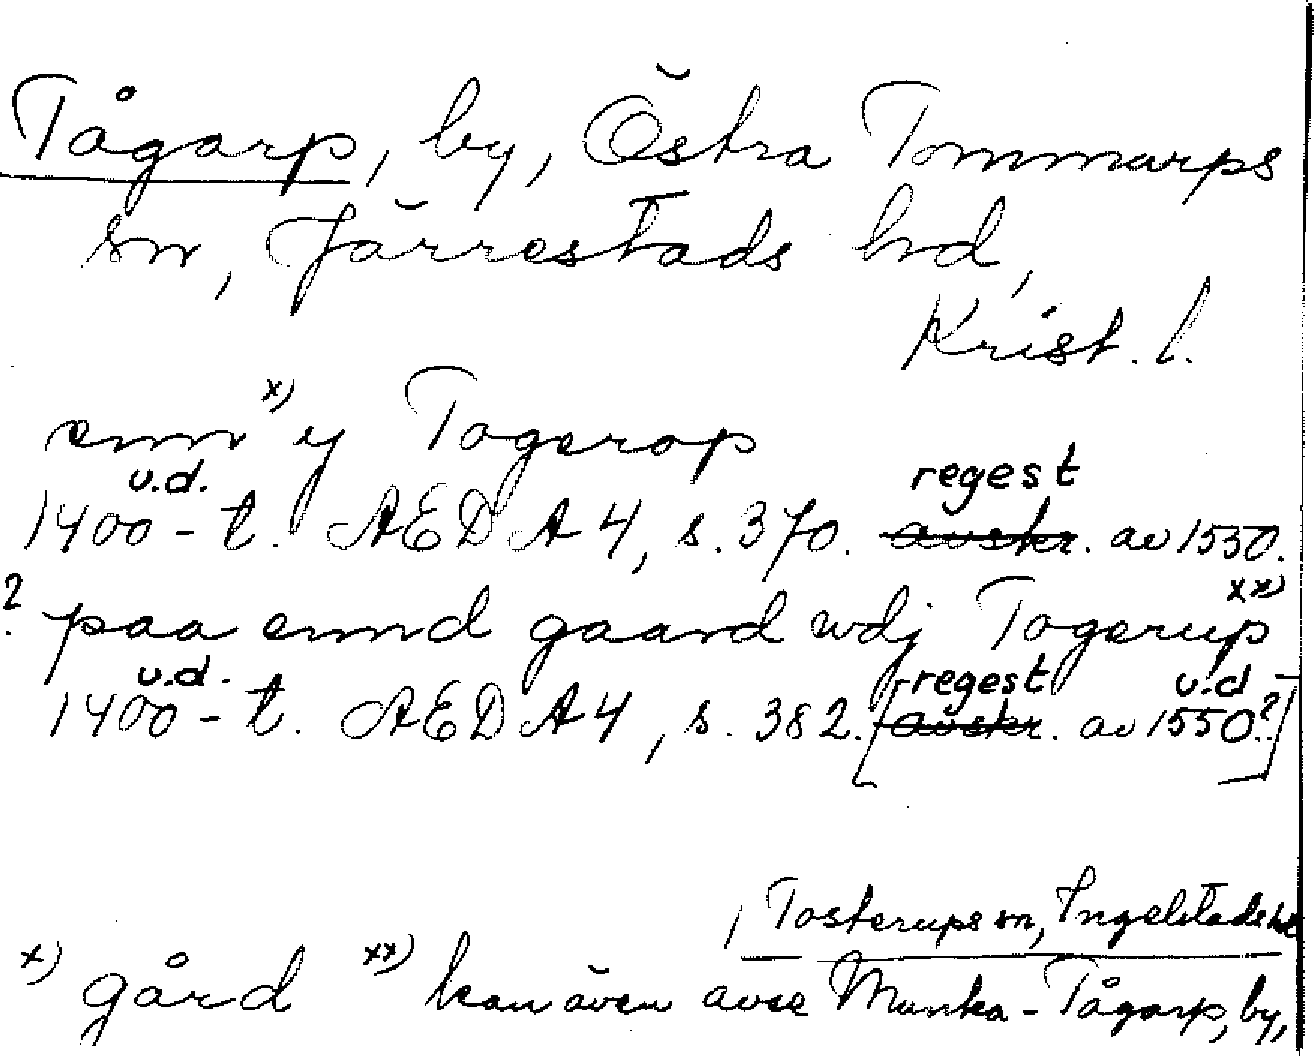 Tågarp, by, Östra Tommarps
sn, Järrestads hd,
Krist. l.
enn x) y Togerop
u.d. regest
1400-t. AEDA4, s. 370. avskr. av 1550.
? paa ennd gaard wdj Togerup xx)
u.d. regest u.d
1400-t. AEDA4, s. 382. [avskr. av 1550?]
Tosterups sn, Ingelstads hd
x) gård xx) kan även avse Munka-Tågarp, by,